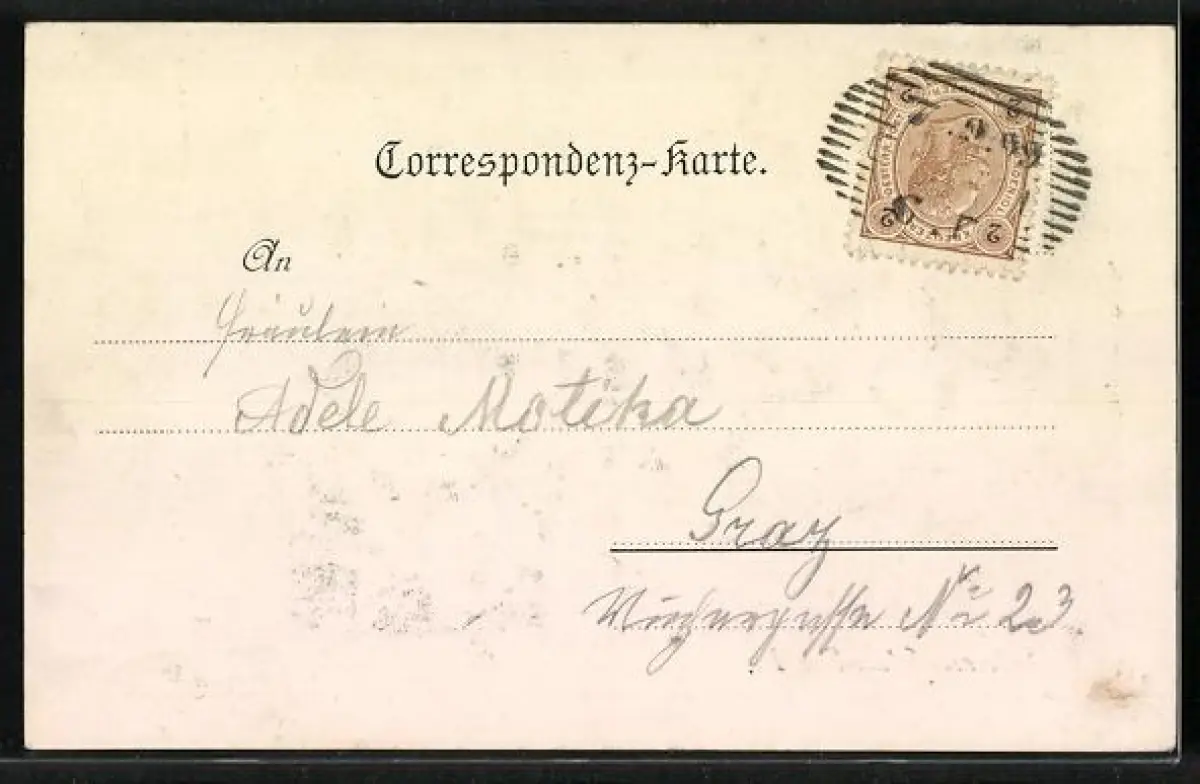 Correspondenz-Karte.
An
Fräulein
Adele Motika
Graz
No 23
2 2 2 2